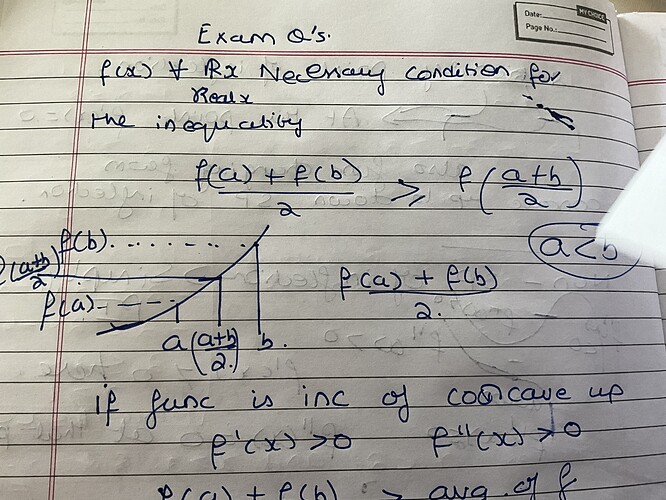 Date:
MY CHOICE
Page No.:
Exam Q's.
f(x) ∀ Rx Necessary condition for
Real x
the inequality
f(a) + f(b) / 2 ≥ f(a+b / 2)
f(b)
a<b
(a+b) / 2
f(a)
f(a) + f(b) / 2.
a (a+b / 2.) b.
if func is inc of concave up
f'(x) >0 f''(x) >0
f(a) + f(b) > avg of f